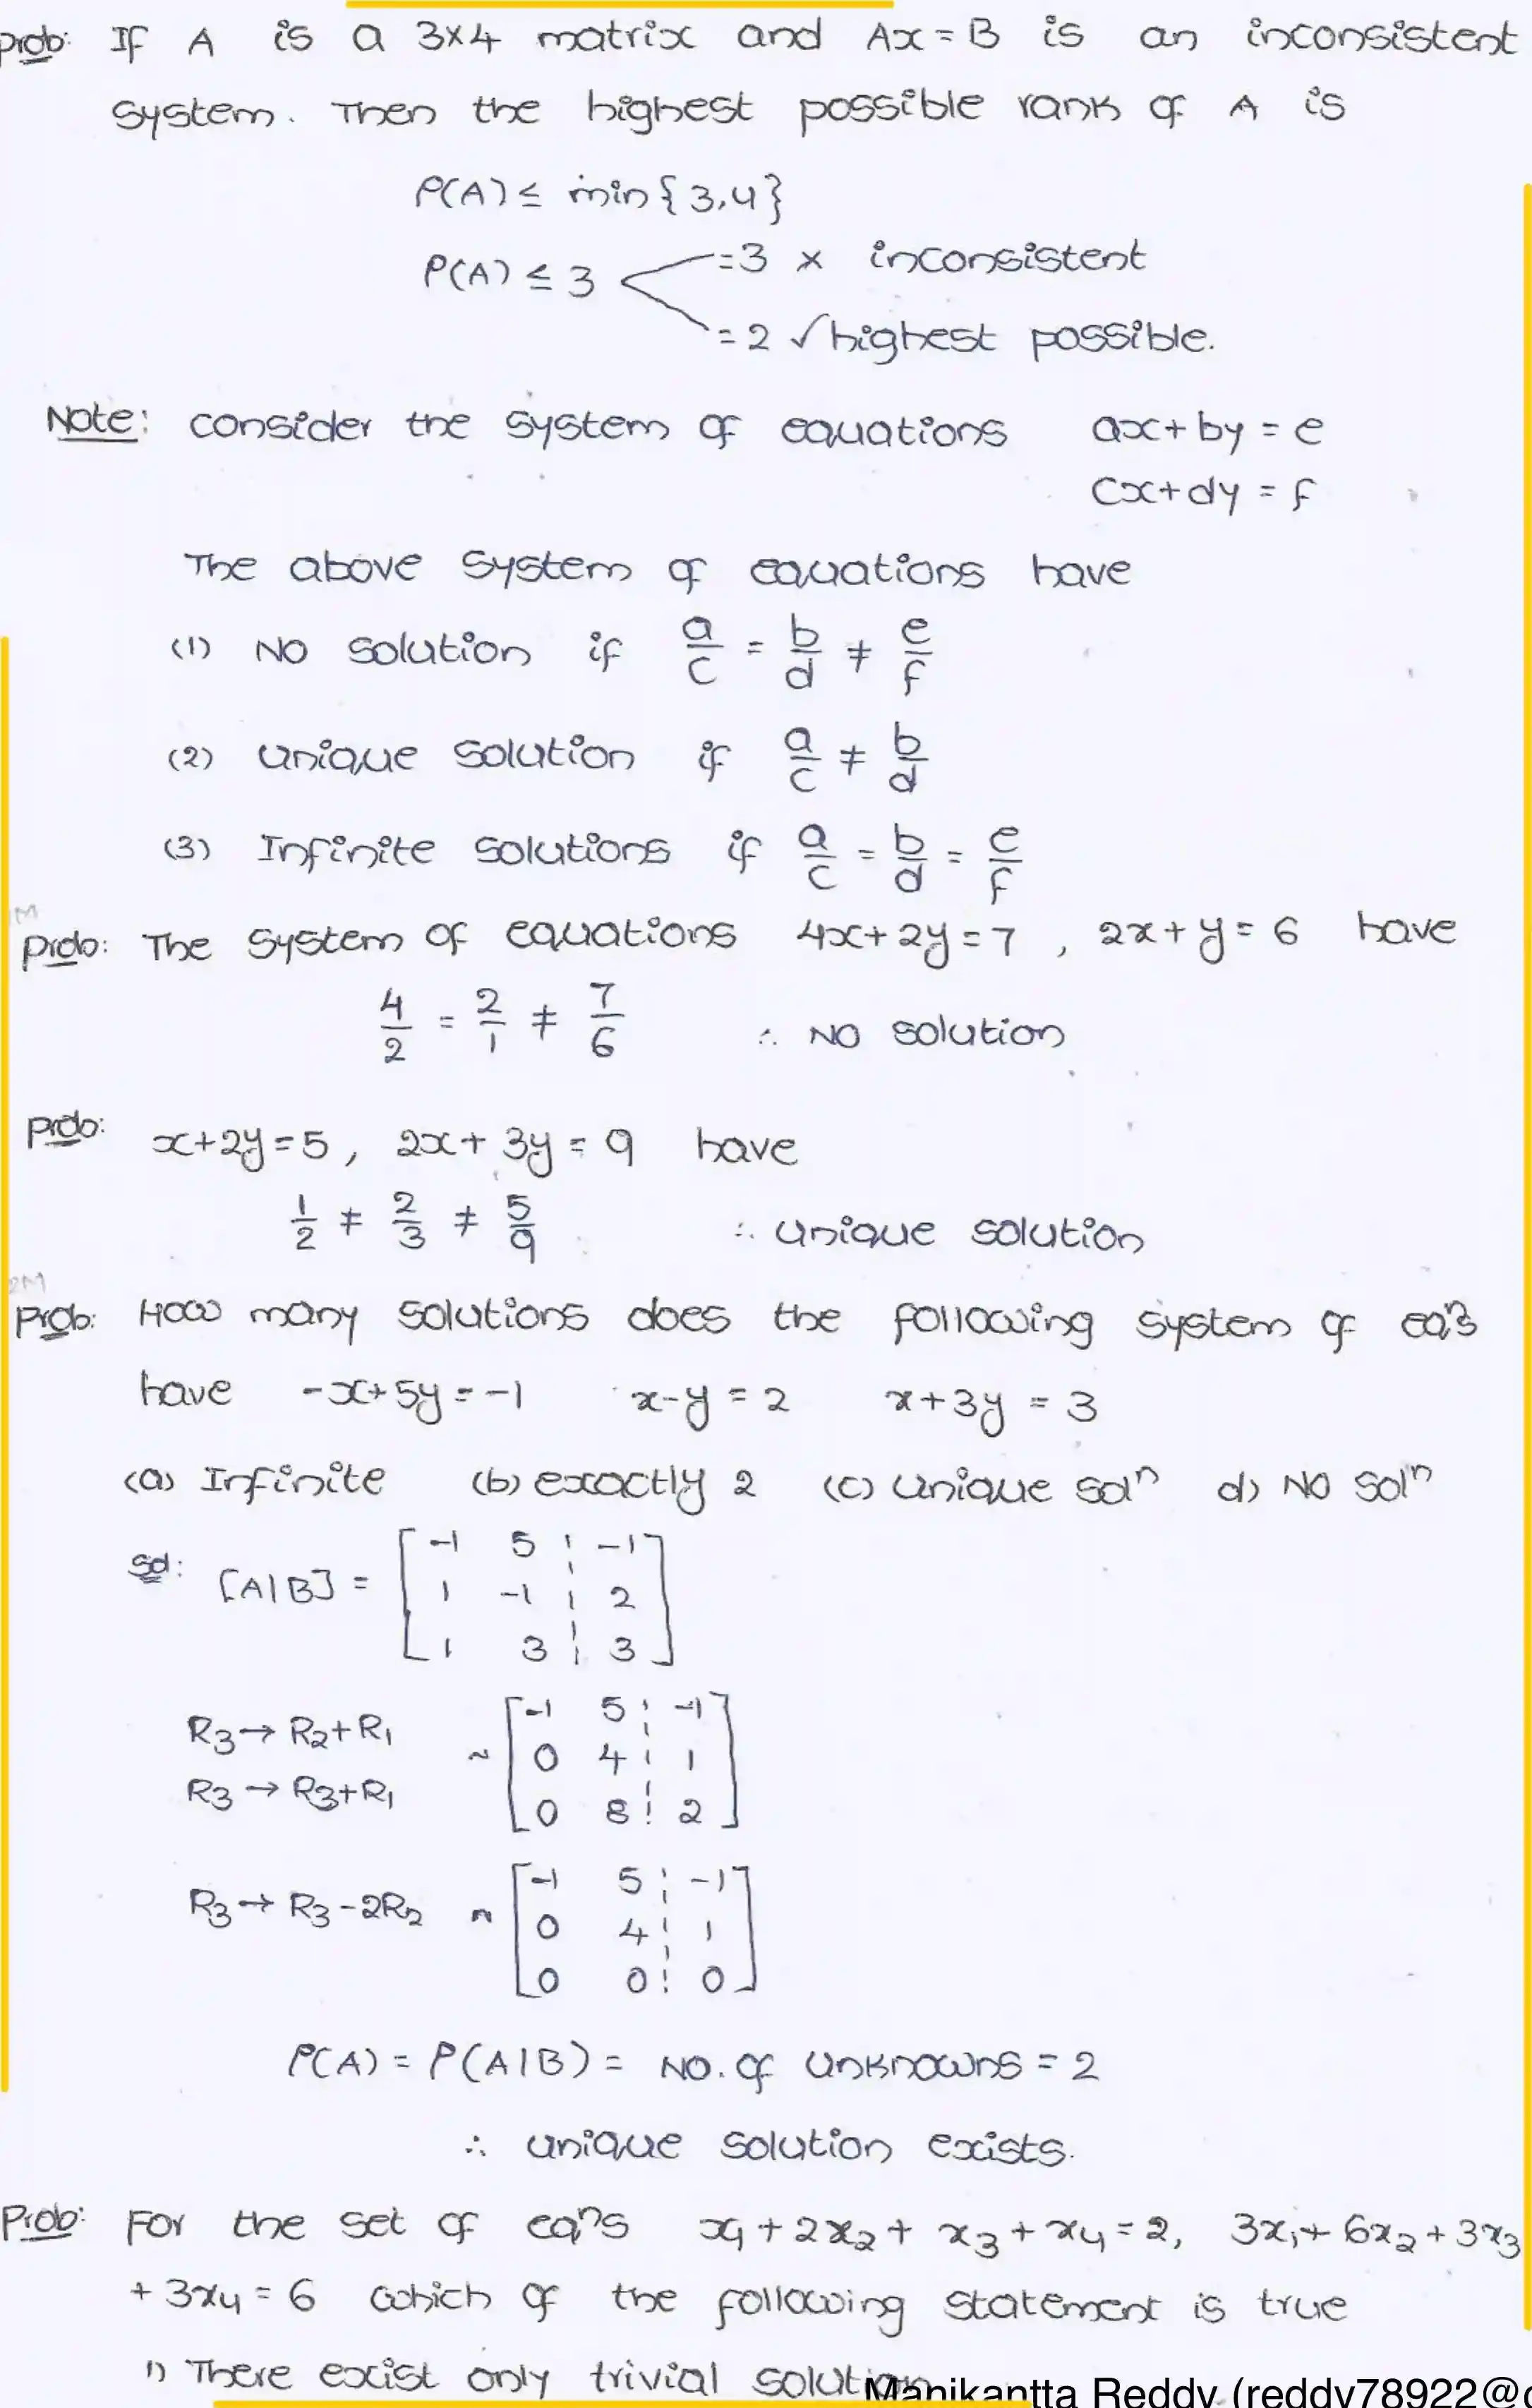 Prob: If A is a 3×4 matrix and Ax = B is an inconsistent
system. Then the highest possible rank of A is
ρ(A) ≤ min{3,4}
ρ(A) ≤ 3 =3 × inconsistent
=2 √highest possible.
Note: consider the system of equations ax+by = e
cx+dy = f
The above system of equations have
(1) No solution if a/c = b/d ≠ e/f
(2) unique solution if a/c ≠ b/d
(3) Infinite solutions if a/c = b/d = e/f
1M
Prob: The system of equations 4x+2y=7 , 2x+y=6 have
4/2 = 2/1 ≠ 7/6 ∴ No solution
Prob: x+2y=5, 2x+3y=9 have
1/2 ≠ 2/3 ≠ 5/9 ∴ unique solution
2M
Prob: How many solutions does the following system of eqns
have -x+5y=-1 x-y=2 x+3y=3
(a) Infinite (b) exactly 2 (c) unique solⁿ d) No solⁿ
Sol: [A|B] = [-1 5 ¦ -1
1 -1 ¦ 2
1 3 ¦ 3]
R₃→R₂+R₁ [-1 5 ¦ -1
~ 0 4 ¦ 1
R₃→R₃+R₁ 0 8 ¦ 2]
[-1 5 ¦ -1
R₃→R₃-2R₂ ~ 0 4 ¦ 1
0 0 ¦ 0]
ρ(A) = ρ(A|B) = No. of unknowns = 2
∴ unique solution exists.
Prob: For the set of eqⁿs x₁+2x₂+x₃+x₄=2, 3x₁+6x₂+3x₃
+3x₄=6 which of the following statement is true
1) There exist only trivial solution
Manikantta Reddy (reddy78922@